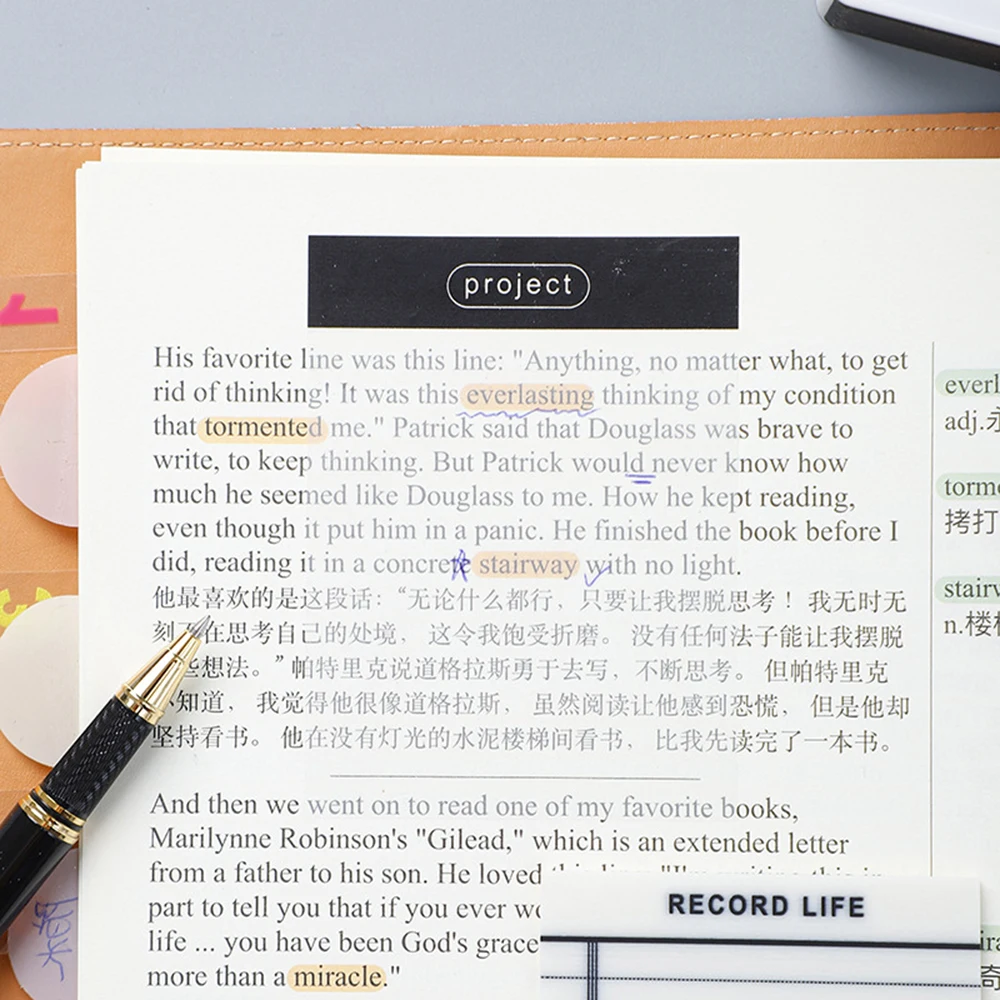 project
His favorite line was this line: "Anything, no matter what, to get
rid of thinking! It was this everlasting thinking of my condition
that tormented me." Patrick said that Douglass was brave to
write, to keep thinking. But Patrick would never know how
much he seemed like Douglass to me. How he kept reading,
even though it put him in a panic. He finished the book before I
did, reading it in a concrete stairway with no light.
他最喜欢的是这段话：“无论什么都行，只要让我摆脱思考！我无时无
刻不在思考自己的处境，这令我饱受折磨。没有任何法子能让我摆脱
些想法。”帕特里克说道格拉斯勇于去写，不断思考。但帕特里克
知道，我觉得他很像道格拉斯，虽然阅读让他感到恐慌，但是他却
坚持看书。他在没有灯光的水泥楼梯间看书，比我先读完了一本书。
And then we went on to read one of my favorite books,
Marilynne Robinson's "Gilead," which is an extended letter
from a father to his son. He loved this line: "I'm writing this in
part to tell you that if you ever
life ... you have been God's grace
more than a miracle."
adj.
拷打
n.楼
奇
RECORD LIFE